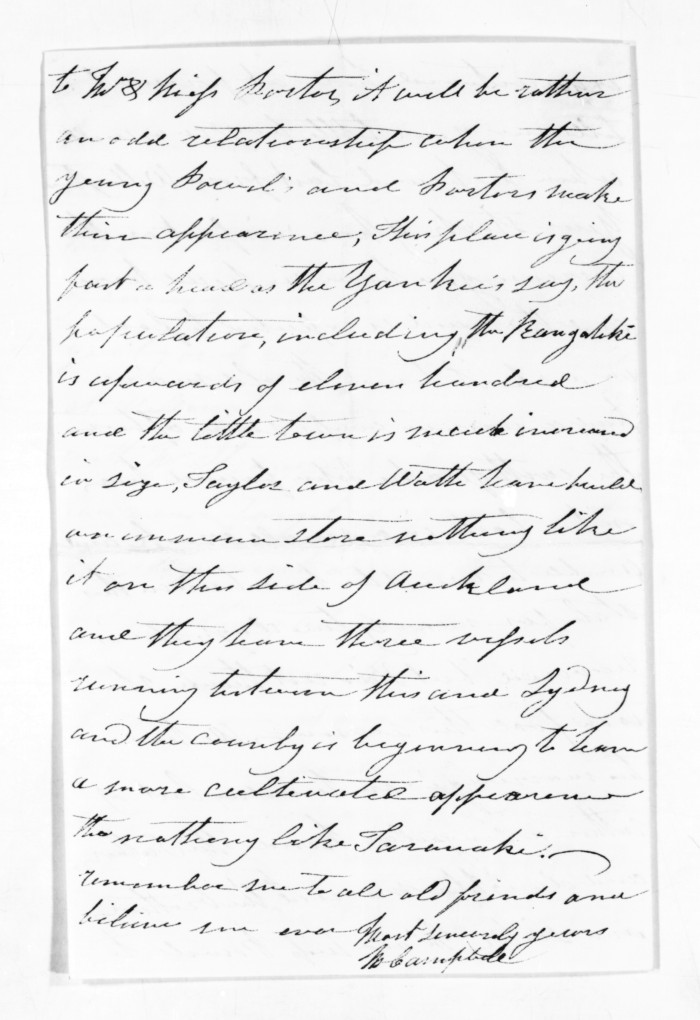 to Mr & Miss Porter, it will be rather
an odd relationship when the
young Powel's and Porters make
their appearance, this place is going
fast a head as the Yankie's say, the
population, including the Rangatiki
is upwards of eleven hundred
and the little town is much increased
in size, Taylor and Watt have build
an immense store nothing like
it on this side of Auckland
and they have three vessels
running between this and Sydney
and the country is beginning to have
a more cultivated appearance
tho nothing like Taranaki.
remember me to all old friends and
believe me ever Most sincerely yours
Campbell